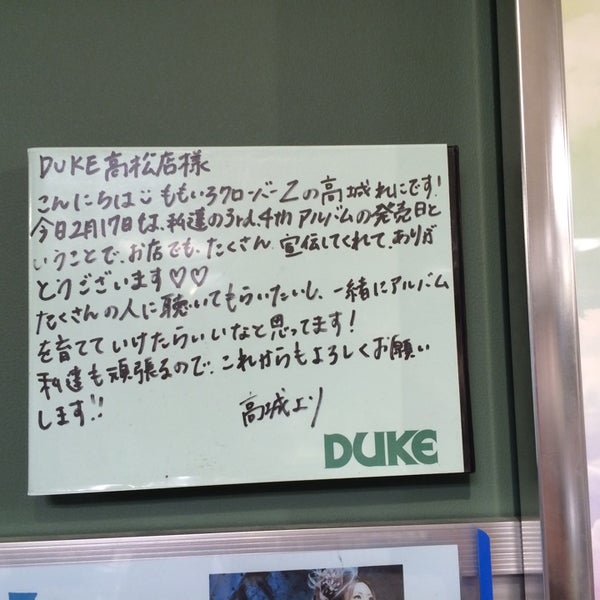 DUKE高松店様
こんにちは ももいろクローバーZの高城れにです!
今日2月17日は、私達の3rd、4thアルバムの発売日と
いうことで、お店でも、たくさん宣伝してくれて、ありが
とうございます♡♡
たくさんの人に聴いてもらいたいし、一緒にアルバム
を育てていけたらいいなと思ってます!
私達も頑張るので、これからもよろしくお願い
します!!
高城より
DUKE